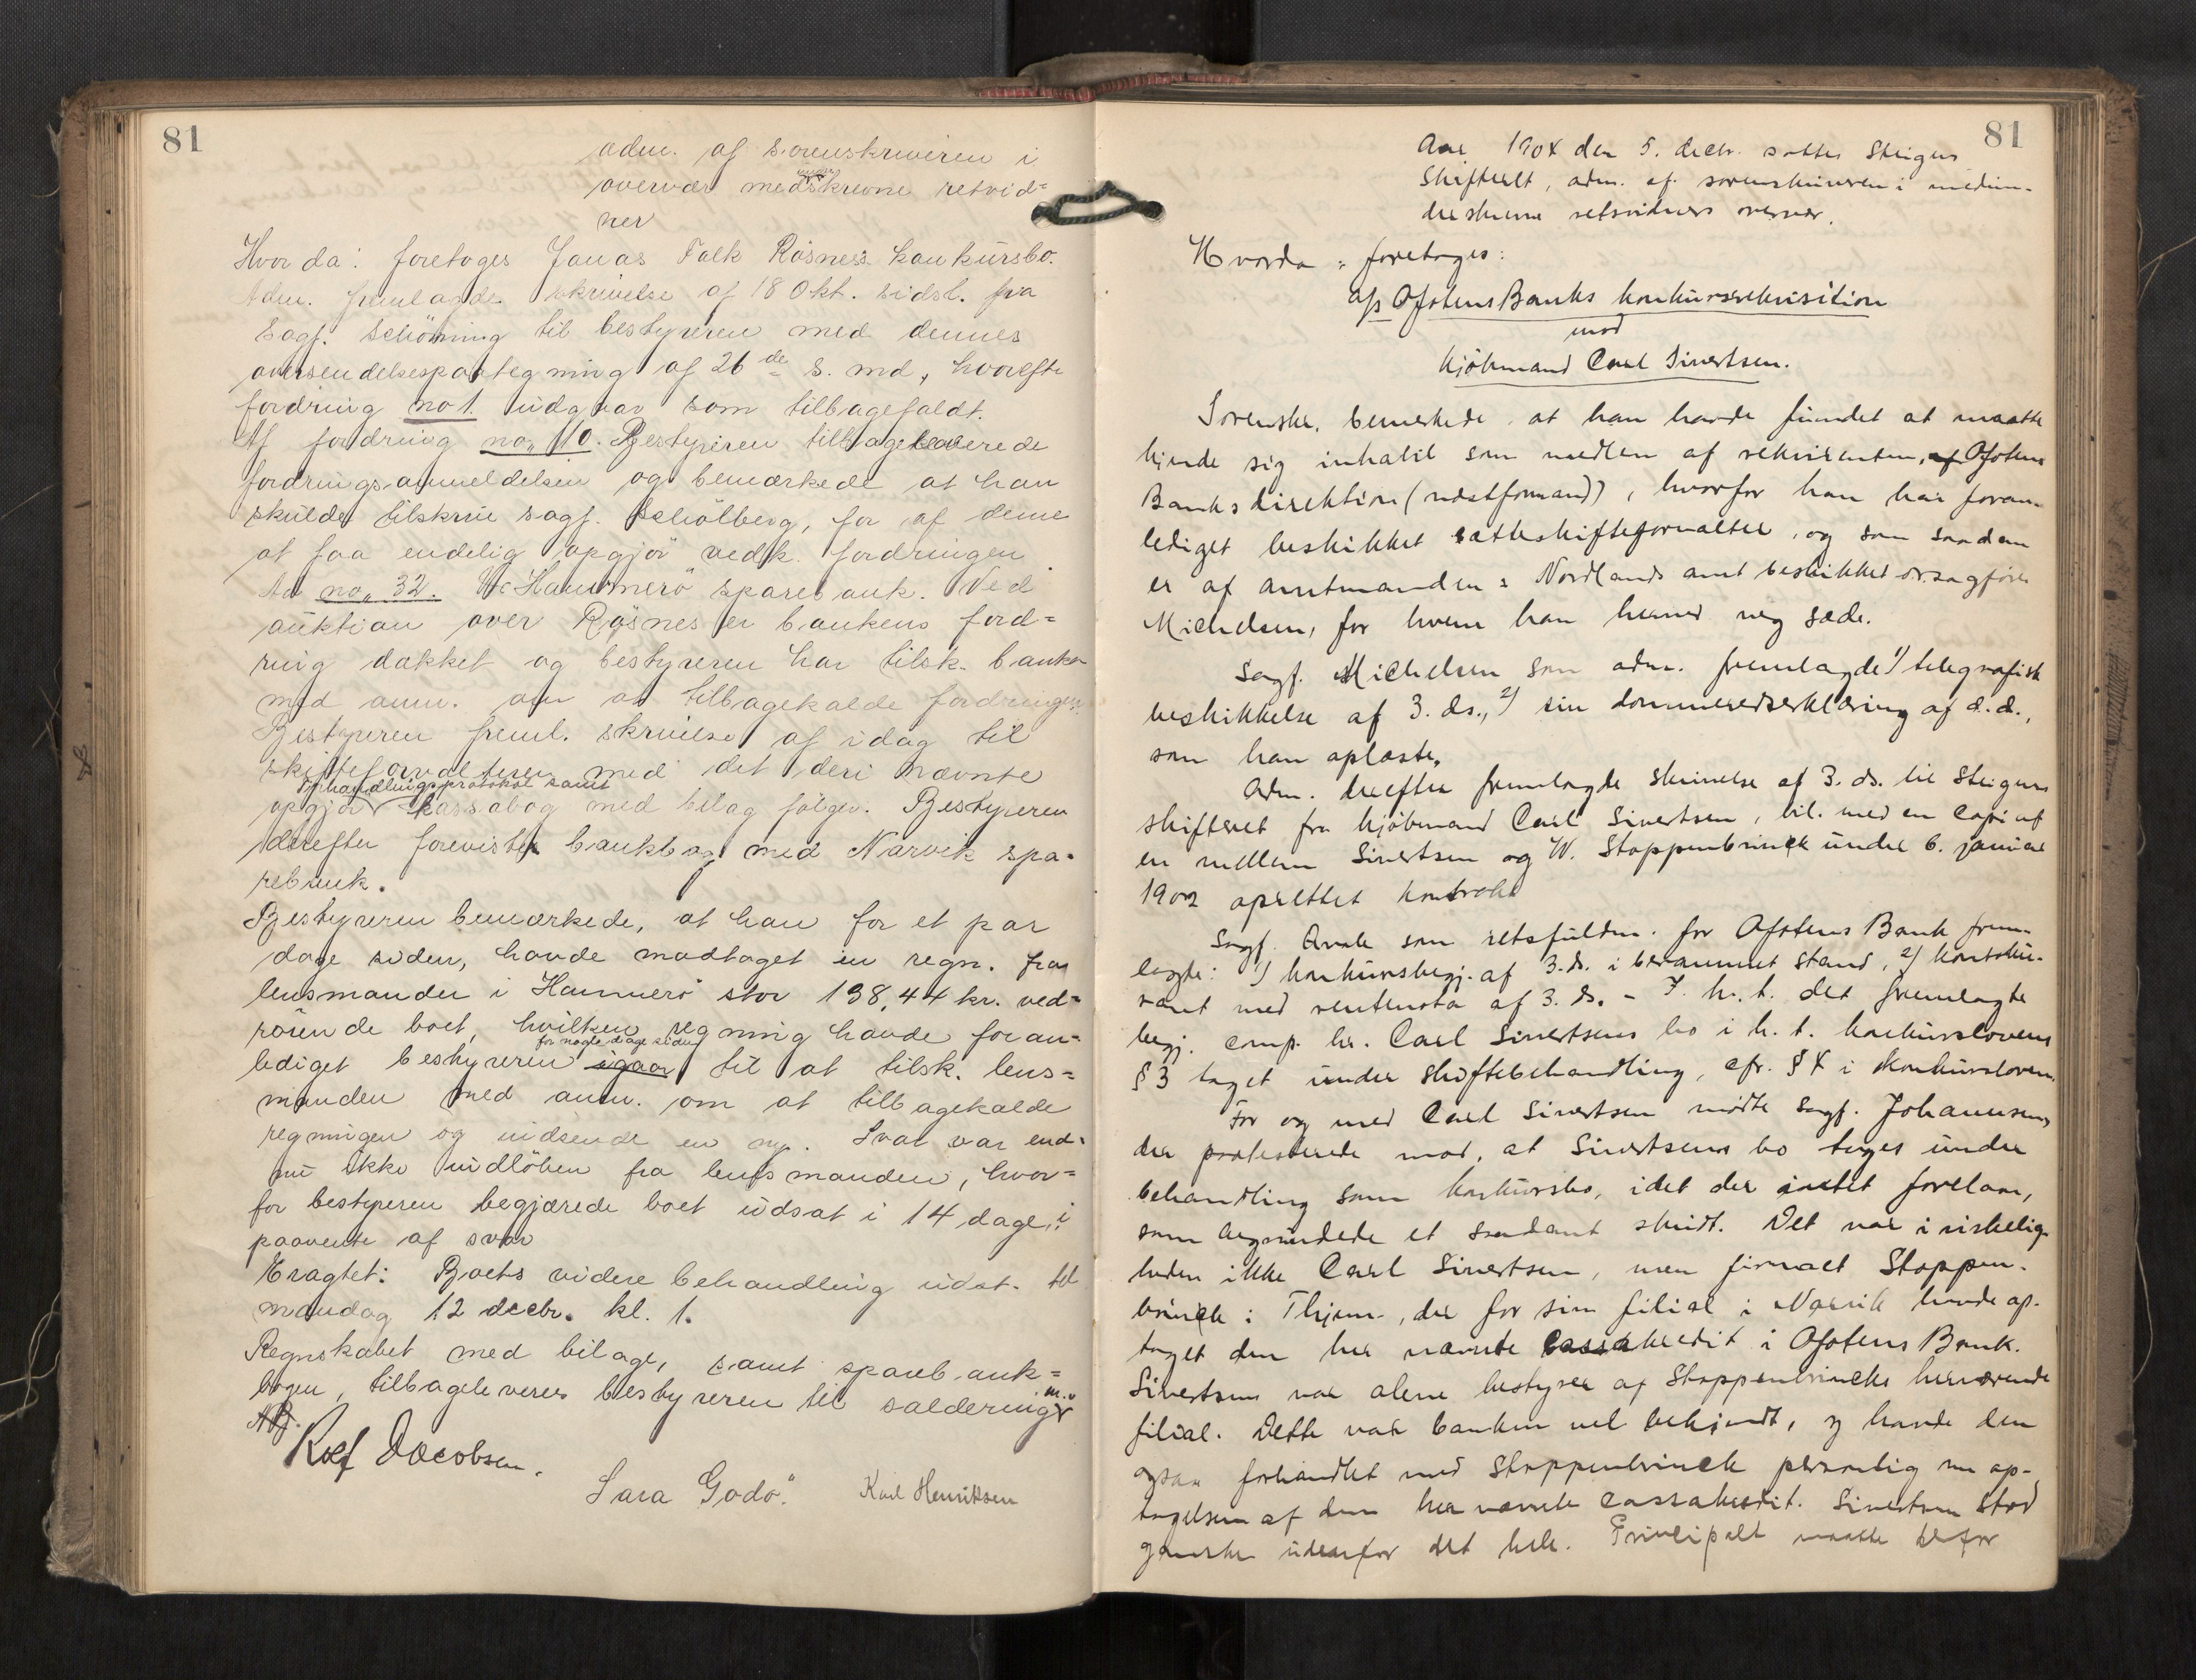 81
adm. af sorenskriveren i
overvær medunderskrevne retvid=
ner
Hvor da: foretoges Jonas Falk Røsnes's konkursbo.
Adm. fremlagde skrivelse af 18 Okt. sidstl. fra
Sagf. Schöning til bestyreren med dennes
oversendelsespaategning af 26de s. md, hvorefter
fordring no 1 udgaar som tilbagekaldt.
Af fordring no, 110. Bestyreren tilbageleverede
fordringsanmeldelsen og bemærkede at han
skulde tilskrive sagf. Schölberg, for af denne
at faa endelig opgjör vedk. fordringen.
Ad no, 32. Hammerö sparebank. Ved
auktion over Røsnes er bankens ford=
ring dækket og bestyreren har tilsk. banken
med anm. om at tilbagekalde fordringen.
Bestyreren freml. skrivelse af idag til
skifteforvalteren med det deri nævnte
forhandlingsprotokol samt
opgjör kassabog med bilag følger. Bestyreren
derefter foreviste bankbog med Narvik spa=
rebank.
Bestyreren bemærkede, at han for et par
dage siden, havde modtaget en regn. fra
lensmanden i Hammerö stor 138,44 kr. ved=
rörende boet, hvilken regning havde foran=
for nogle dage siden
lediget bestyreren igaar til at tilsk. lens=
manden med anm. om at tilbagekalde
regningen og indsende en ny. Svar var end=
nu ikke indlöben fra lensmanden, hvor=
for bestyreren begjærede boet udsat i 14 dage, i
paavente af svar
Eragtet: Boets videre behandling udsat. til
mandag 12 decbr. kl. 1.
Regnskabet med bilage, samt sparebank=
bogen, tilbageleveres bestyreren til saldering m.v
Rolf Jacobsen.
Sara Godö. Karl Henriksen
81
Aar 1904 den 5. decbr. sattes Steigens
Skifteret, adm. af sorenskriveren i medun-
derskrevne retsvidners overvær.
Hvorda: foretoges:
a/s Ofotens Banks konkursrekvisition
mod
kjöbmand Carl Sivertsen.
Sorenskr. bemerkede, at han havde fundet at maatte
kjende sig inhabil som medlem af rekvirenten, af Ofotens
Banks direktion (næstformand), hvorfor han har foran-
lediget beskikket sætteskifteforvalter, og som saadan
er af amtmanden i Nordlands amt beskikket o.r.sagfører
Michelsen, for hvem han herved veg sæde.
Sagf. Michelsen som adm. fremlagde 1) telegrafisk
beskikkelse af 3. ds., 2) sin dommeredserklæring af d.d.,
som han oplæste.
Adm. derefter fremlagde skrivelse af 3. ds. til Steigens
skifteret fra kjöbmand Carl Sivertsen, bil. med en copi af
en mellem Sivertsen og W. Stoppenbrinck under 6. januar
1902 oprettet kontrakt
Sagf. Quale som retsfuldm. for Ofotens Bank frem-
lagde: 1) konkursbegj. af 3. ds. i berammet stand, 2) kontoku-
rant med rentenota af 3. ds. - I. h. t. det fremlagte
begj. comp. hr. Carl Sivertsens bo i h. t. konkurslovens
§ 3 taget under skiftebehandling, cfr. § 4 i konkursloven.
For og med Carl Sivertsen mödte sagf. Johannesen,
der protesterede mod, at Sivertsens bo toges under
behandling som konkursbo, idet der intet forelaa,
som begrundede et saadant skridt. Det var i virkelig-
heden ikke Carl Sivertsen, men firmaet Stoppen-
brinck i Thjem., der for sin filial i Narvik havde op-
taget den her nævnte cassakredit i Ofotens Bank.
Sivertsen var alene bestyrer af Stoppenbrincks herværende
filial. Dette var banken vel bekjendt, og havde den
ogsaa forhandlet med Stoppenbrinck personlig om op-
tagelsen af den her nævnte cassakredit. Sivertsen stod
ganske udenfor det hele. Principalt maatte derfor